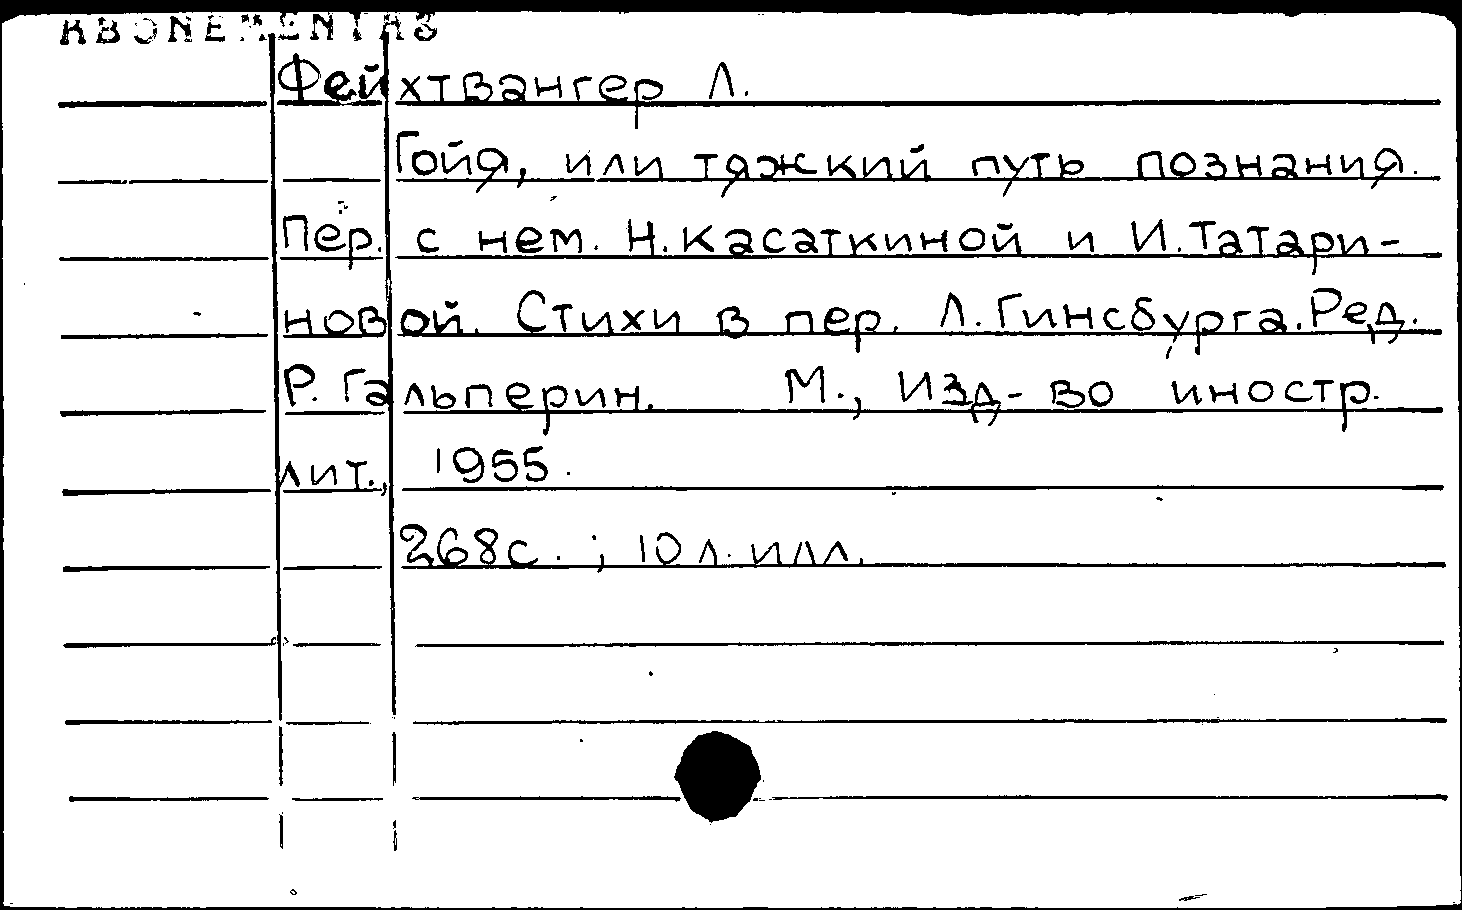 ABONEMENTAS
Фейхтвангер Л.
Гойя, или тяжкий путь познания.
Пер. с нем. Н.Касаткиной и И.Татари-
новой. Стихи в пер. Л.Гинсбурга.Ред.
Р. Гальперин. М., Изд-во иностр.
лит., 1955.
268с. ; 10 л. илл.